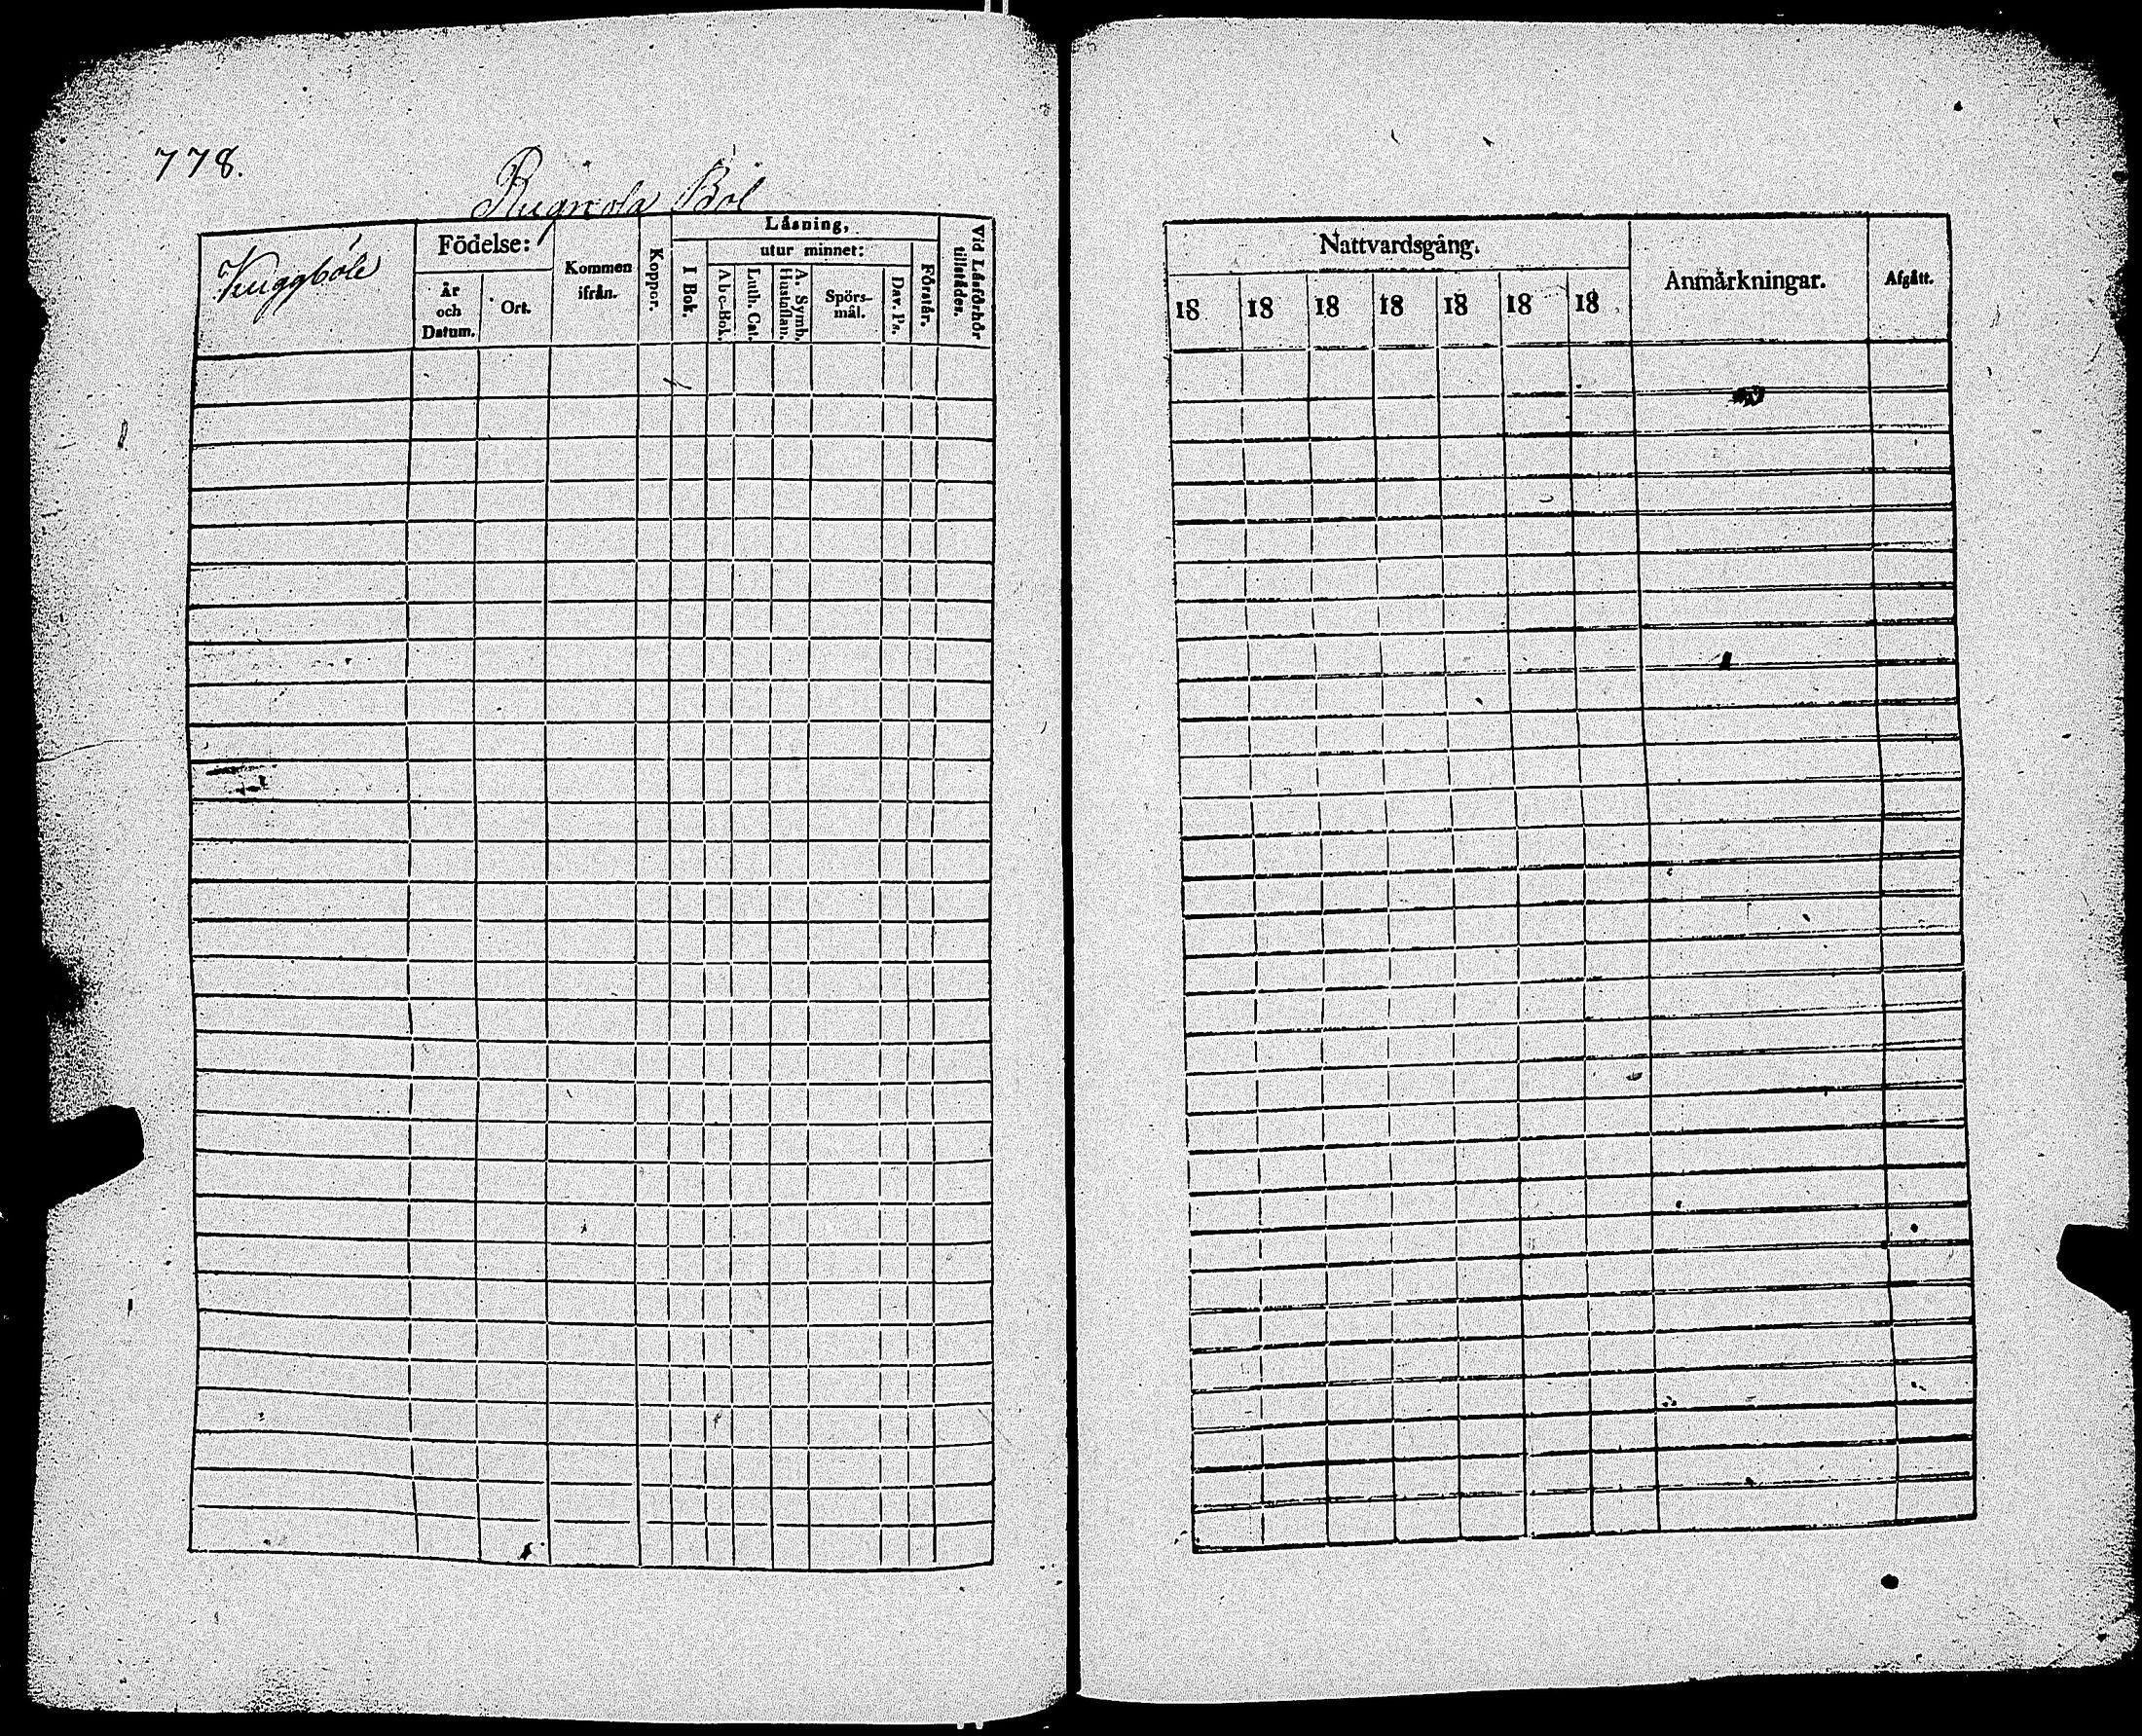 778.
Rugnola Bol
Vinggböle
Födelse:
År
och
Datum.
Ort.
Kommen
ifrån.
Koppor.
Läsning,
I Bok.
utur minnet:
Abc-Bok.
Luth. Cat.
A. Symb.
Hustaflan.
Spörs-
mål.
Dav. Ps.
Förstår.
Vid Läsförhör
tillstädes.
Nattvardsgång.
18 18 18 18 18 18 18
Anmärkningar.
Afgått.